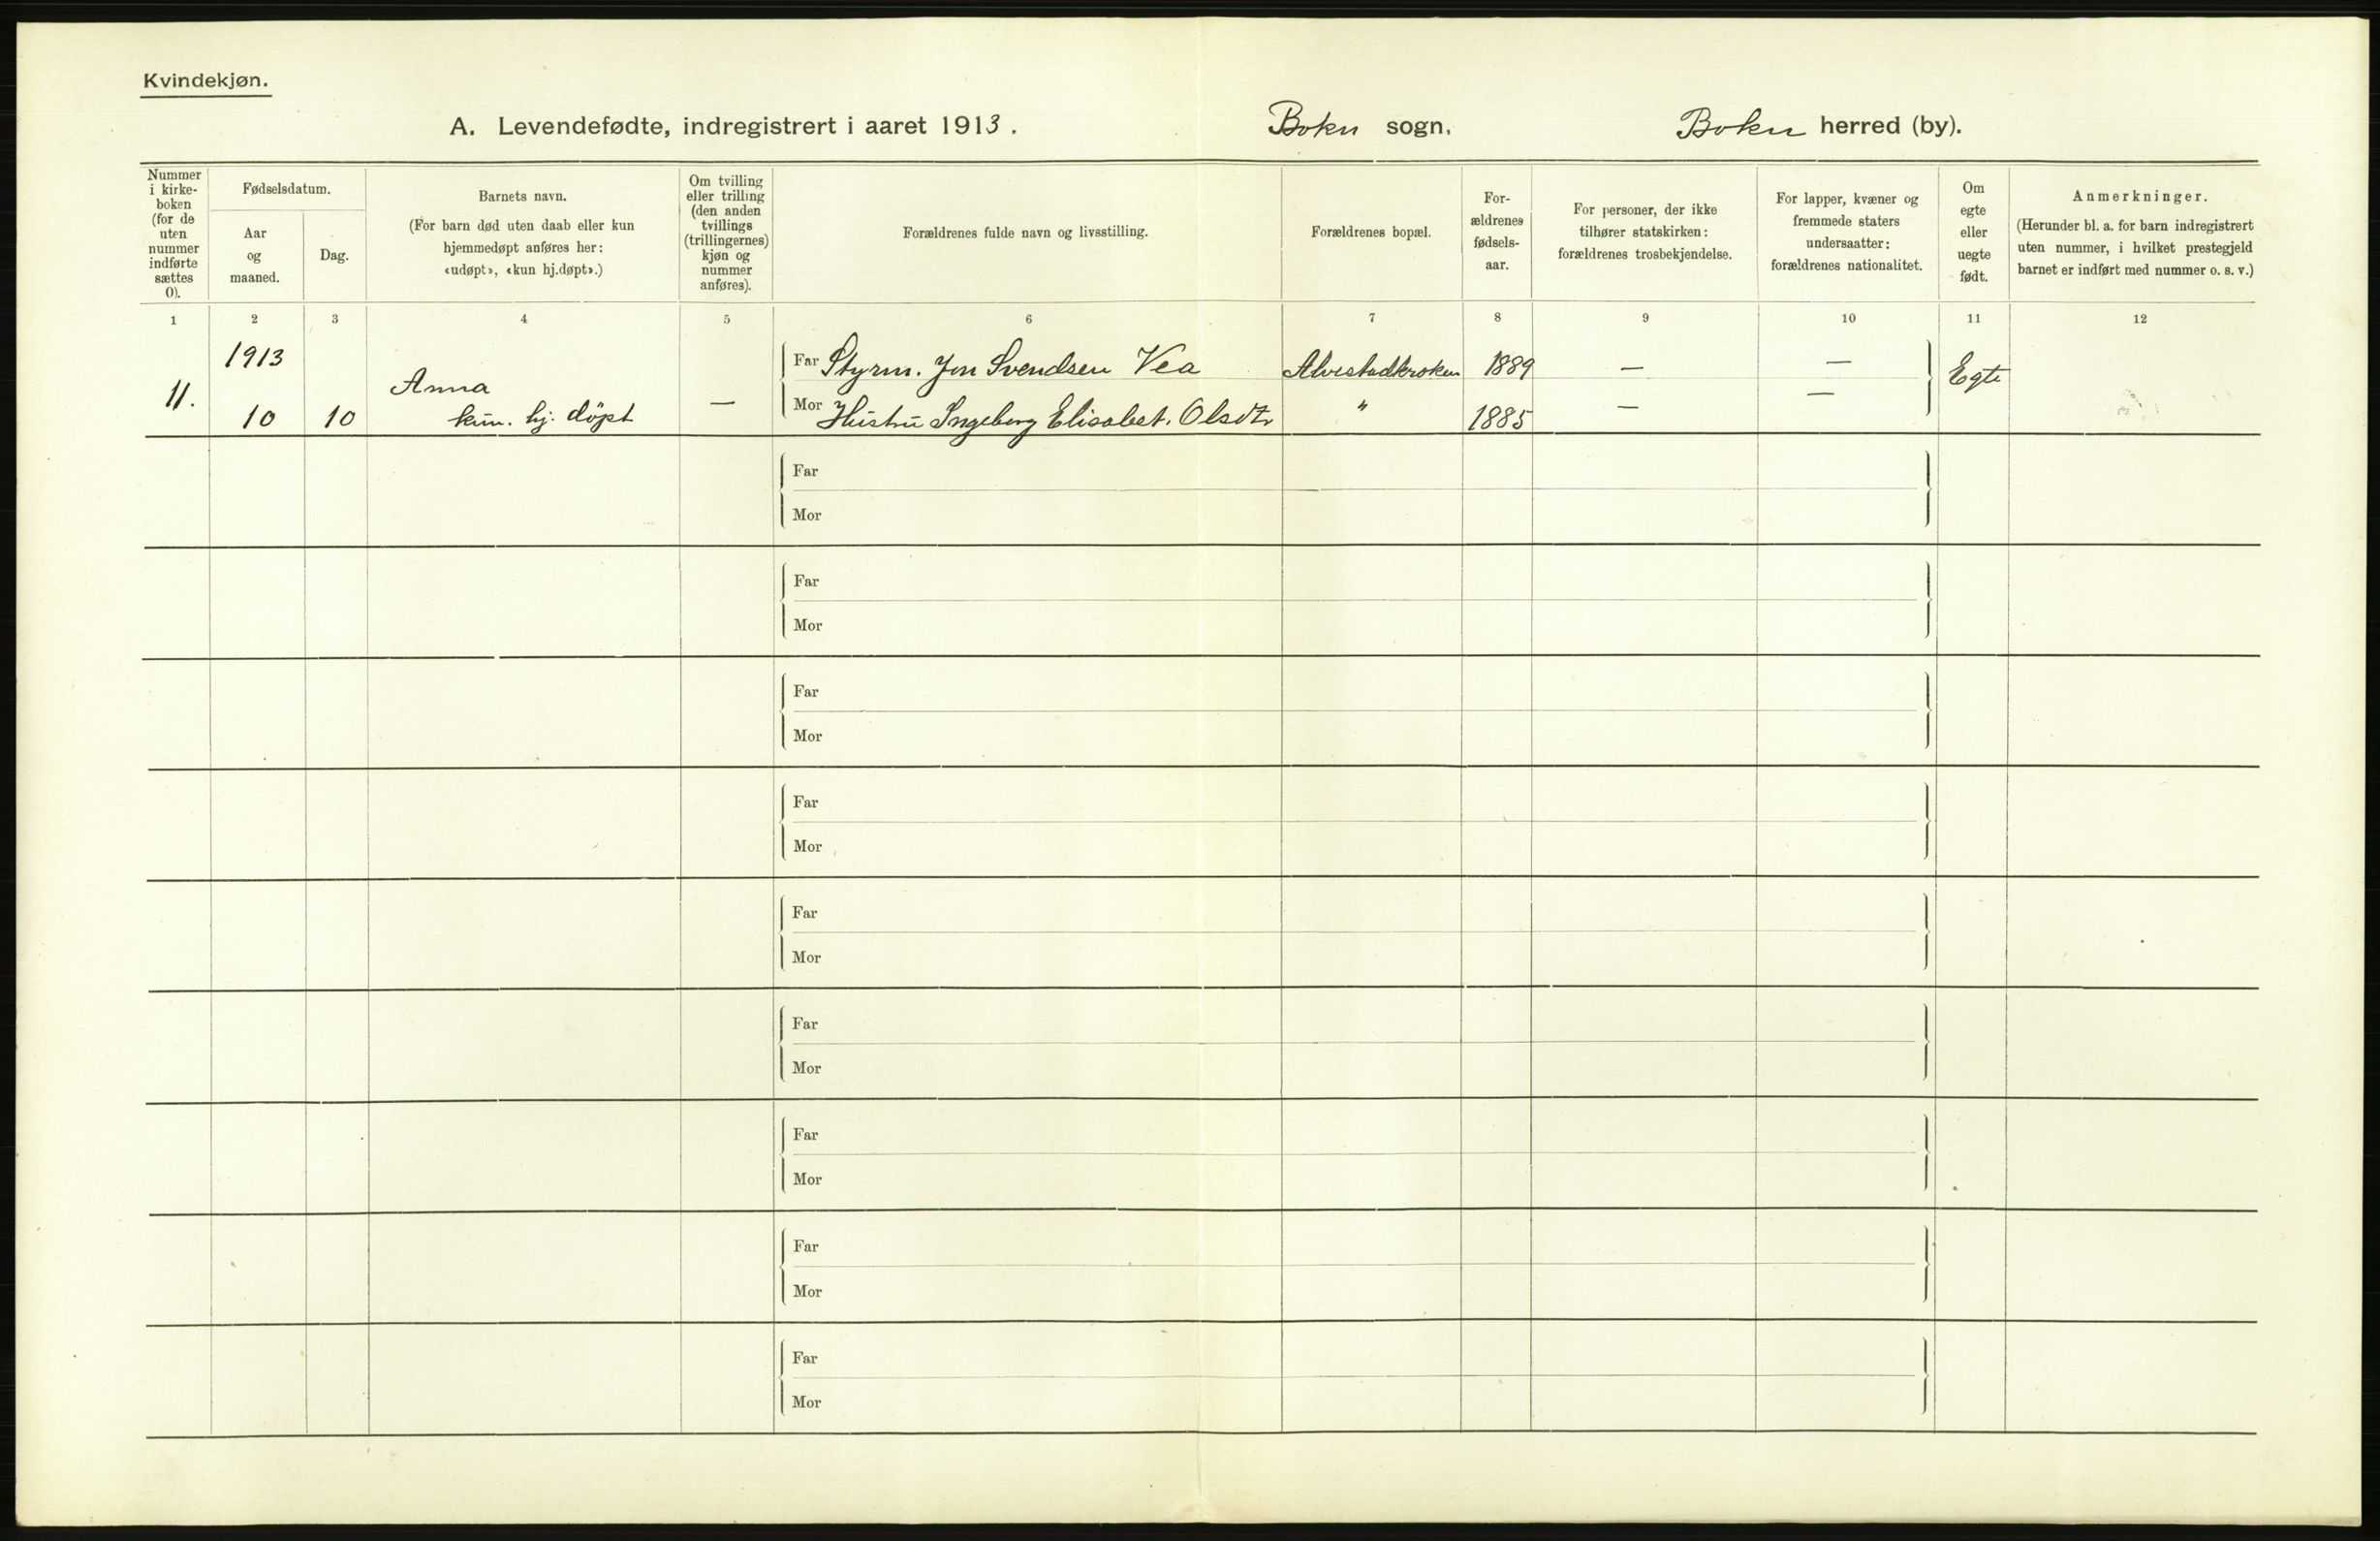 Kvindekjøn.
A. Levendefødte, indregistrert i aaret 1913. Bokn sogn. Bokn herred (by).
Nummer i kirke- boken (for de uten nummer indførte sættes 0).
Fødselsdatum.
Aar og maaned.
Dag.
Barnets navn.
(For barn død uten daab eller kun hjemmedøpt anføres her: «udøpt», «kun hj.døpt».)
Om tvilling eller trilling (den anden tvillings (trillingernes) kjøn og nummer anføres).
Forældrenes fulde navn og livsstilling.
Forældrenes bopæl.
For- ældrenes fødsels- aar.
For personer, der ikke tilhører statskirken: forældrenes trosbekjendelse.
For lapper, kvæner og fremmede staters undersaatter: forældrenes nationalitet.
Om egte eller uegte født.
Anmerkninger.
(Herunder bl. a. for barn indregistrert uten nummer, i hvilket prestegjeld barnet er indført med nummer o. s. v.)
1 2 3 4 5 6 7 8 9 10 11 12
1913 Far Styrm. Jon Svendsen Vea Alvestadkroken 1889 — —
11. Anna — Egte
10 10 kun. hj. døpt Mor Hustru Ingeborg Elisabet. Olsdtr " 1885 — —
Far
Mor
Far
Mor
Far
Mor
Far
Mor
Far
Mor
Far
Mor
Far
Mor
Far
Mor
Far
Mor